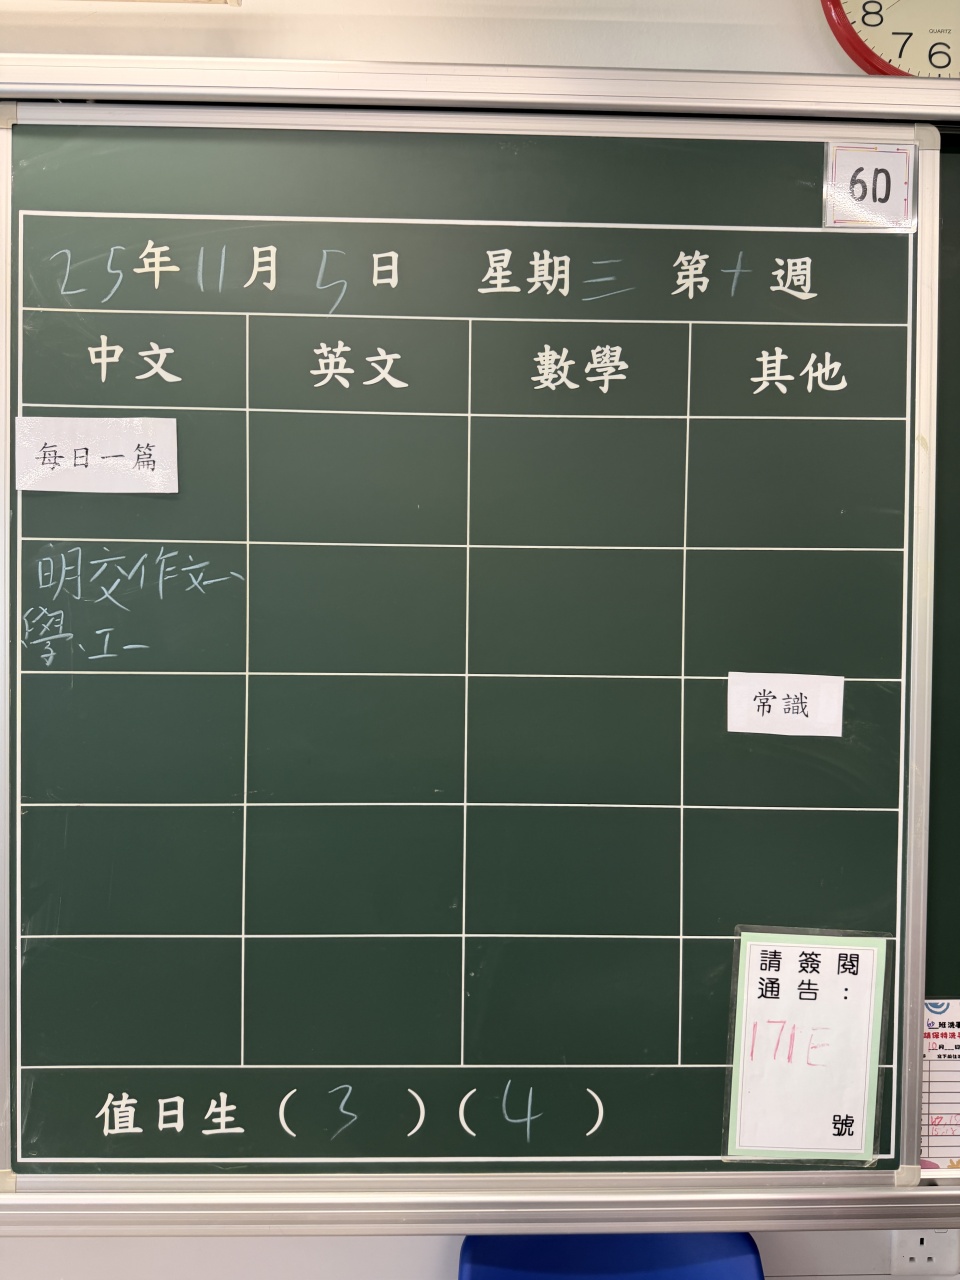 8
7 6
QUARTZ
6D
25年11月5日 星期三 第十週
中文 英文 數學 其他
每日一篇
明交作文、
學、工一
常識
請簽閱
通告：
171E
號
值日生（3）（4）